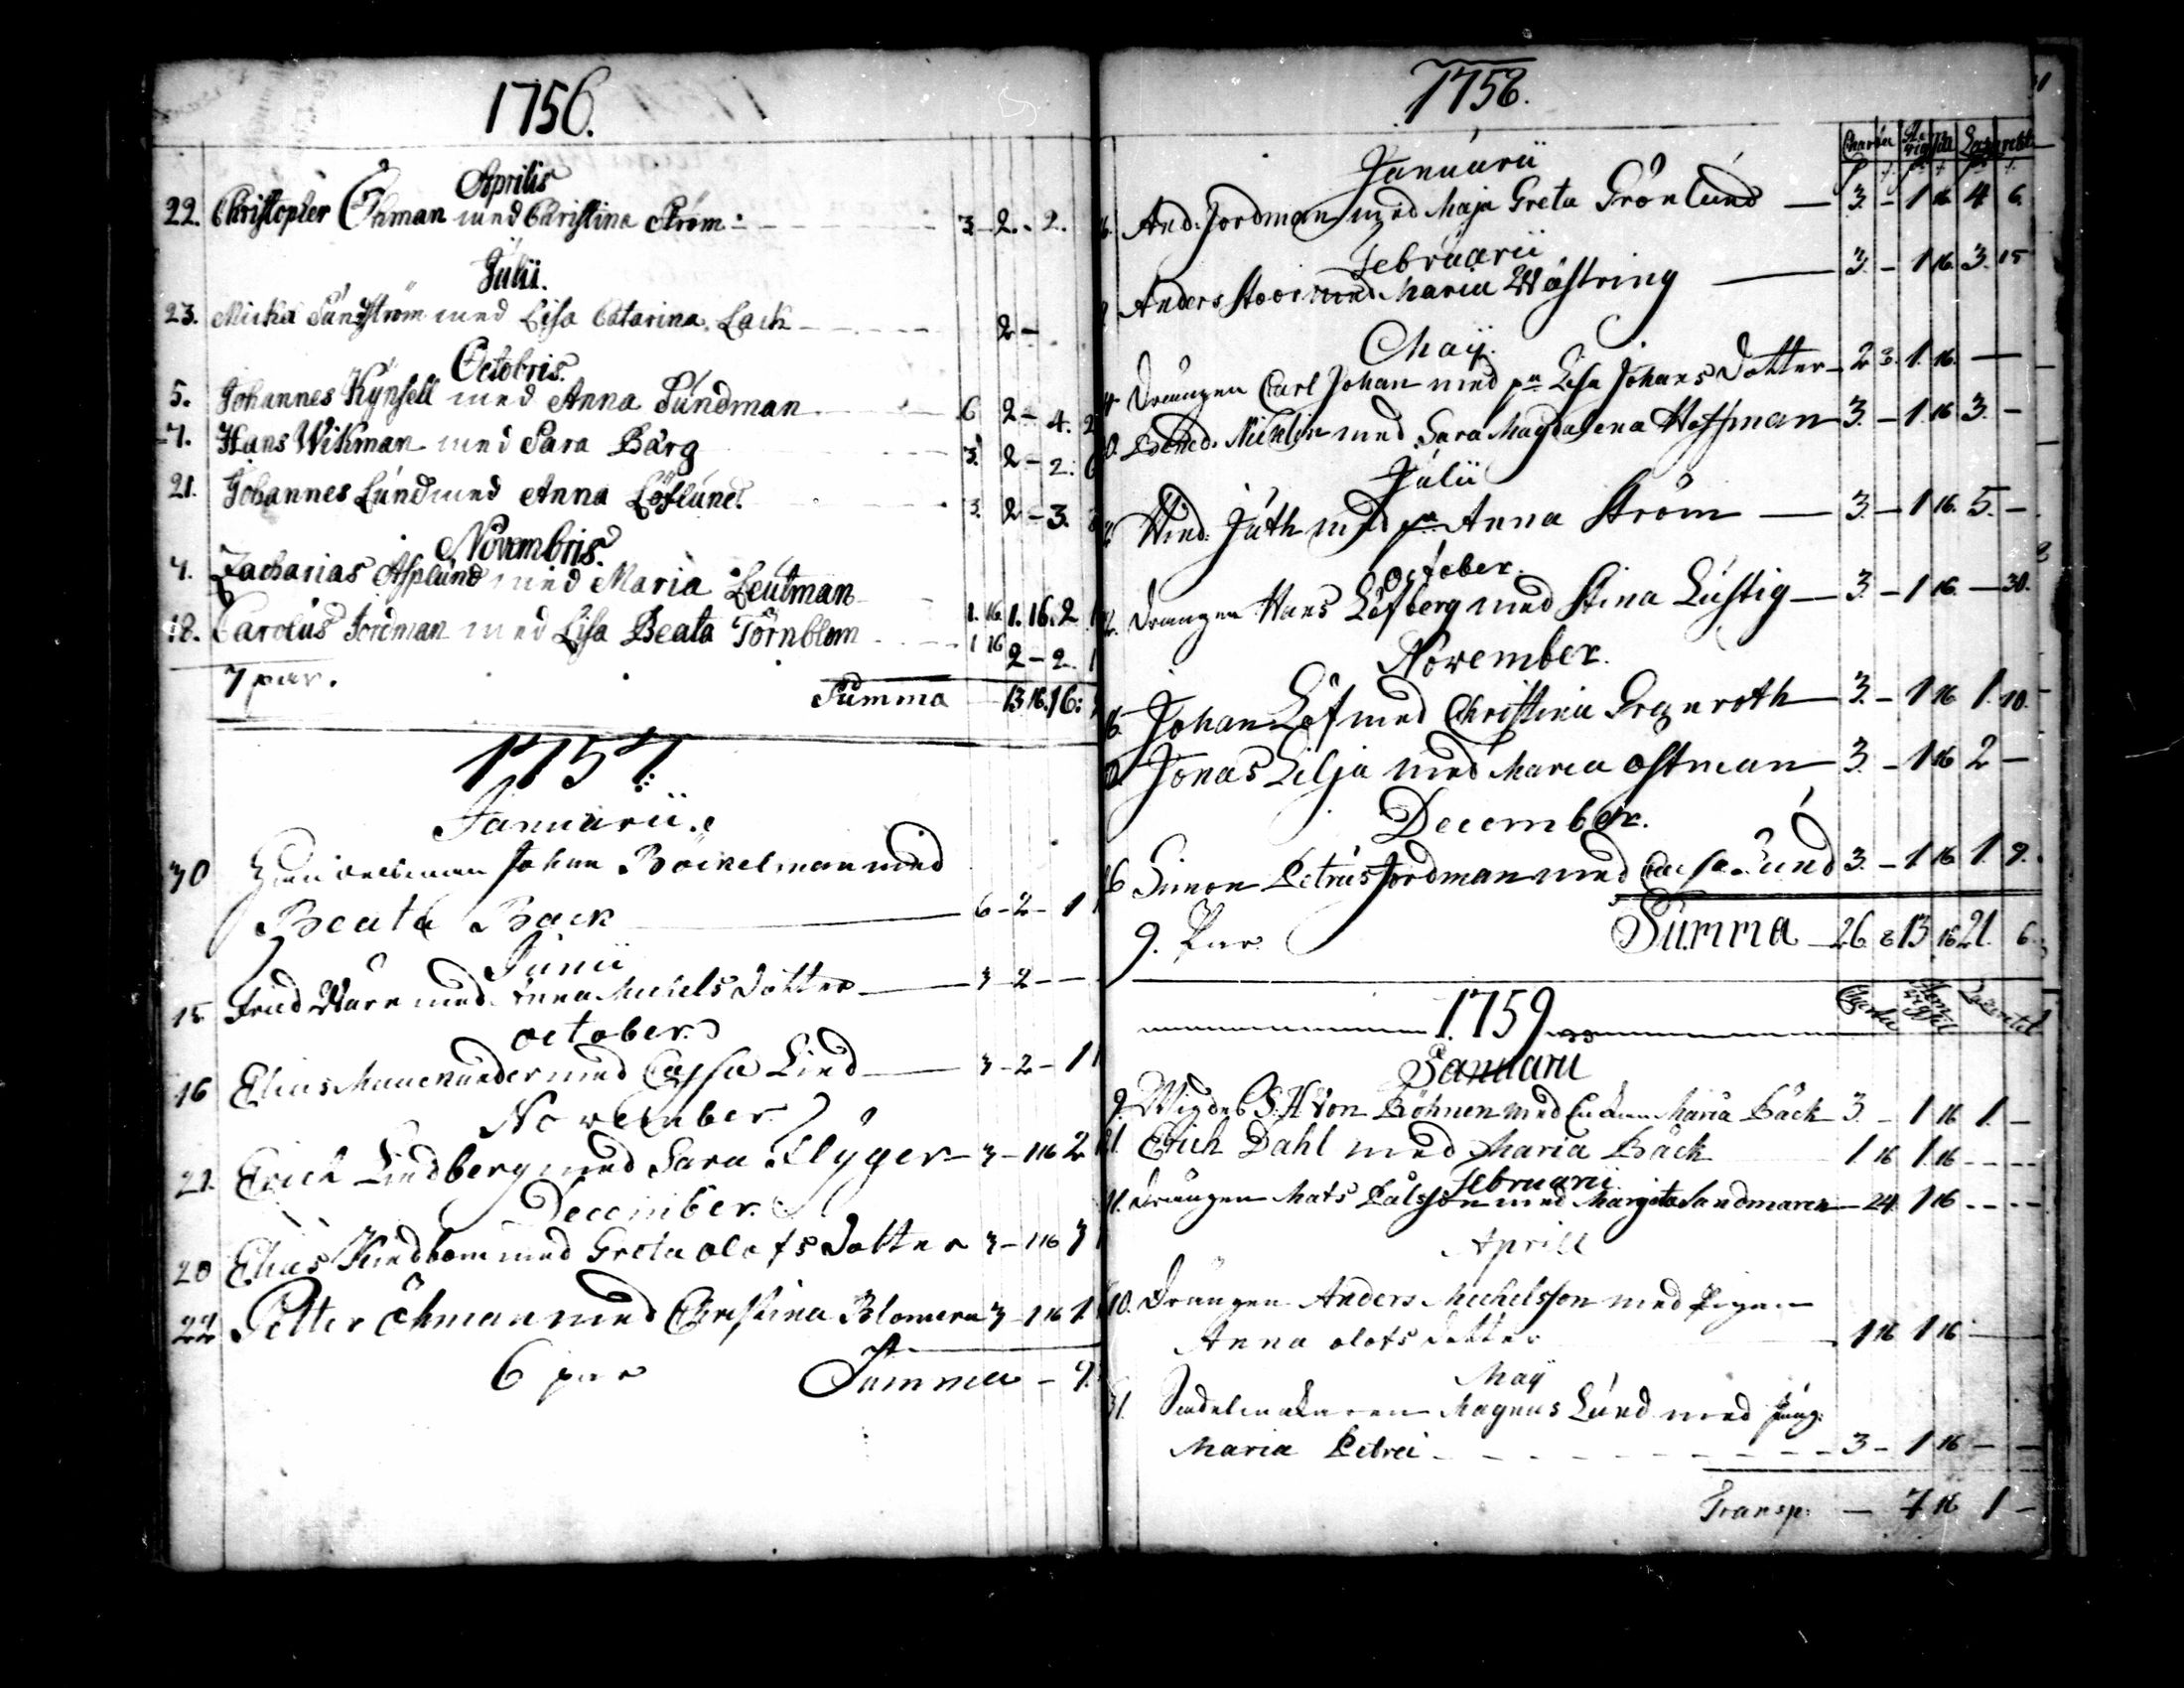 1756.
Aprilis
22. Christopher Öhman med Christina Ström. 3. 2. - 2.
Julii.
23. Mickel Sundström med Lisa Catarina Lack 2 -
Octobris.
5. Johannes Kynsell med Anna Sundman 6 2 - 4.
7. Hans Wikman med Sara Bärg 3. 2 - 2.
21. Johannes Lund med Anna Löflund. 3. 2 - 3.
Novembris.
4. Zacharias Asplund med Maria Leutman 1. 16. 1. 16. 2
18. Carolus Jordman med Lisa Beata Törnblom 1 16 2 - 2.
7 par. Summa 13 16. 16:
1757.
Januarii.
30 Johan Böckelman med
Beata Back 6 - 2 - 1
Junii
15. Fred Wäre med Anna Michels Dotter 3 - 2 -
October.
16 Elias med Cajsa Lind 3 - 2 - 1
November
21. Erich Lindberg med Sara Flyger 3 - 1 16 2
December.
20 Elias med Greta Olofs Dotter 3 - 1 16 3
22 Petter Öhman med Christina Blomern 3 - 1 16 1
6 par Summa - 9.
1758.
Charta Sigill Lazarettet
Januarii
And. Jordman med Maja Greta Grönlund 3. - 1 16 4 6.
Februarii
Anders med Maria Wästring 3. - 1 16. 3. 15
Maij.
Drängen Carl Johan med pn Lisa Johans Dotter 2 3. 1. 16. —
Bened. Nicklin med Sara Magdalena Hoffman 3. - 1. 16 3. -
Julii
Hind. Jäth med pn Anna Ström 3. - 1 16. 5. -
October.
Drängen Hans Löfberg med Stina Lustig 3 - 1 16. - 30.
November.
Johan Löf med Christina Granroth 3. - 1 16 1. 10.
Jonas Lilja med Maria Östman 3. - 1 16 2 -
December.
16 Simon Petrus Jordman med Caisa Lund 3. - 1 16 1. 9.
9. Par. Summa 26. 8 13 16 21. 6.
1759
Januarii
9. S. H. von Böhnen med Maria Bäck 3. - 1 16 1. -
21. Erich Dahl med Maria Bäck 1. 16 1. 16 - - - -
Februarii.
11. Drängen Mats Pålsson med Margeta Sandmaren - 24. 1 16 - - - -
Aprill
10. Drängen Anders Michelsson med Pigan
Anna Olofs Dotter 1 16 1 16 —
Maij
31. Sadelmakaren Magnus Lund med Jung:
Maria Petrei - - - - 3 - 1 16 - -
Transp: — 7 16 1 -